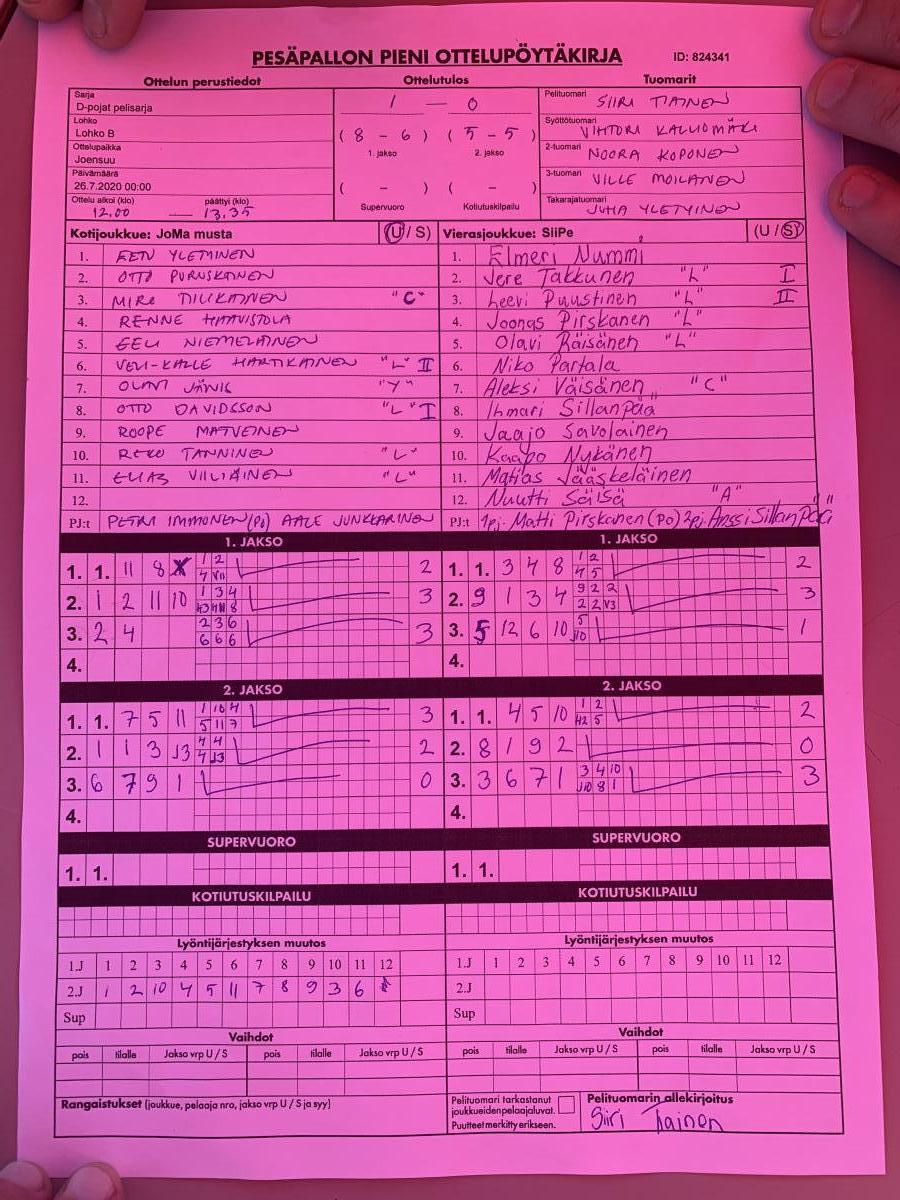 PESÄPALLON PIENI OTTELUPÖYTÄKIRJA ID: 824341
Ottelun perustiedot Ottelutulos Tuomarit
Sarja
D-pojat pelisarja
Lohko
Lohko B
Ottelupaikka
Joensuu
Päivämäärä
26.7.2020 00:00
Ottelu alkoi (klo) päättyi (klo)
12.00 — 13.35
1 — 0
(8 - 6) (5 - 5)
1. jakso 2. jakso
( - ) ( - )
Supervuoro Kotiutuskilpailu
Pelituomari SIIRI TIAINEN
Syöttötuomari VIHTORI KALLIOMÄKI
2-tuomari NOORA KOPONEN
3-tuomari VILLE MOILANEN
Takarajatuomari JUHA YLETYINEN
Kotijoukkue: JoMa musta (U / S)
1. EETU YLETYINEN
2. OTTO PURUSKAINEN
3. MIRO TILIKAINEN "C"
4. RENNE HAAVISTOLA
5. EELI NIEMELÄINEN
6. VELI-KALLE HARTIKAINEN "L" II
7. OLAVI JÄNIS "Y"
8. OTTO DAVIDSSON "L" I
9. ROOPE MATVEINEN
10. REKO TANNINEN "L"
11. ELIAS VILLIÄINEN "L"
12.
PJ:t PETRI IMMONEN (Po) AALE JUNKKARINEN
Vierasjoukkue: SiiPe (U / S)
1. Elmeri Nummi
2. Jere Takkunen "L" I
3. Leevi Puustinen "L" II
4. Joonas Pirskanen "L"
5. Olavi Räisänen "L"
6. Niko Partala
7. Aleksi Väisänen "C"
8. Ihmari Sillanpää
9. Jaajo Savolainen
10. Kaapo Nykänen
11. Matias Jääskeläinen
12. Nuutti Säisä "A"
PJ:t 1pj. Matti Pirskanen (Po) 2pj. Anssi Sillanpää
1. JAKSO
1. 1. 11 8 2
2. 1 2 11 10 1 3 4 3
3. 2 4 2 3 6 6 6 6 3
4.
1. JAKSO
1. 1. 3 4 8 1 2 4 5 2
2. 9 1 3 4 9 2 2 2 2 V3 3
3. 5 12 6 10 5 J10 1
4.
2. JAKSO
1. 1. 7 5 11 1 10 4 5 11 7 3
2. 1 1 3 J3 4 4 4 J3 2
3. 6 7 9 1 0
4.
2. JAKSO
1. 1. 4 5 10 1 2 5 2
2. 8 1 9 2 0
3. 3 6 7 1 3 4 10 J10 8 1 3
4.
SUPERVUORO
1. 1.
SUPERVUORO
1. 1.
KOTIUTUSKILPAILU
KOTIUTUSKILPAILU
Lyöntijärjestyksen muutos
1.J 1 2 3 4 5 6 7 8 9 10 11 12
2.J 1 2 10 4 5 11 7 8 9 3 6
Sup
Lyöntijärjestyksen muutos
1.J 1 2 3 4 5 6 7 8 9 10 11 12
2.J
Sup
Vaihdot
pois tilalle Jakso vrp U / S pois tilalle Jakso vrp U / S
Vaihdot
pois tilalle Jakso vrp U / S pois tilalle Jakso vrp U / S
Rangaistukset (joukkue, pelaaja nro, jakso vrp U / S ja syy)
Pelituomari tarkastanut
joukkueidenpelaajaluvat.
Puutteet merkitty erikseen.
Pelituomarin allekirjoitus
Siiri Tiainen